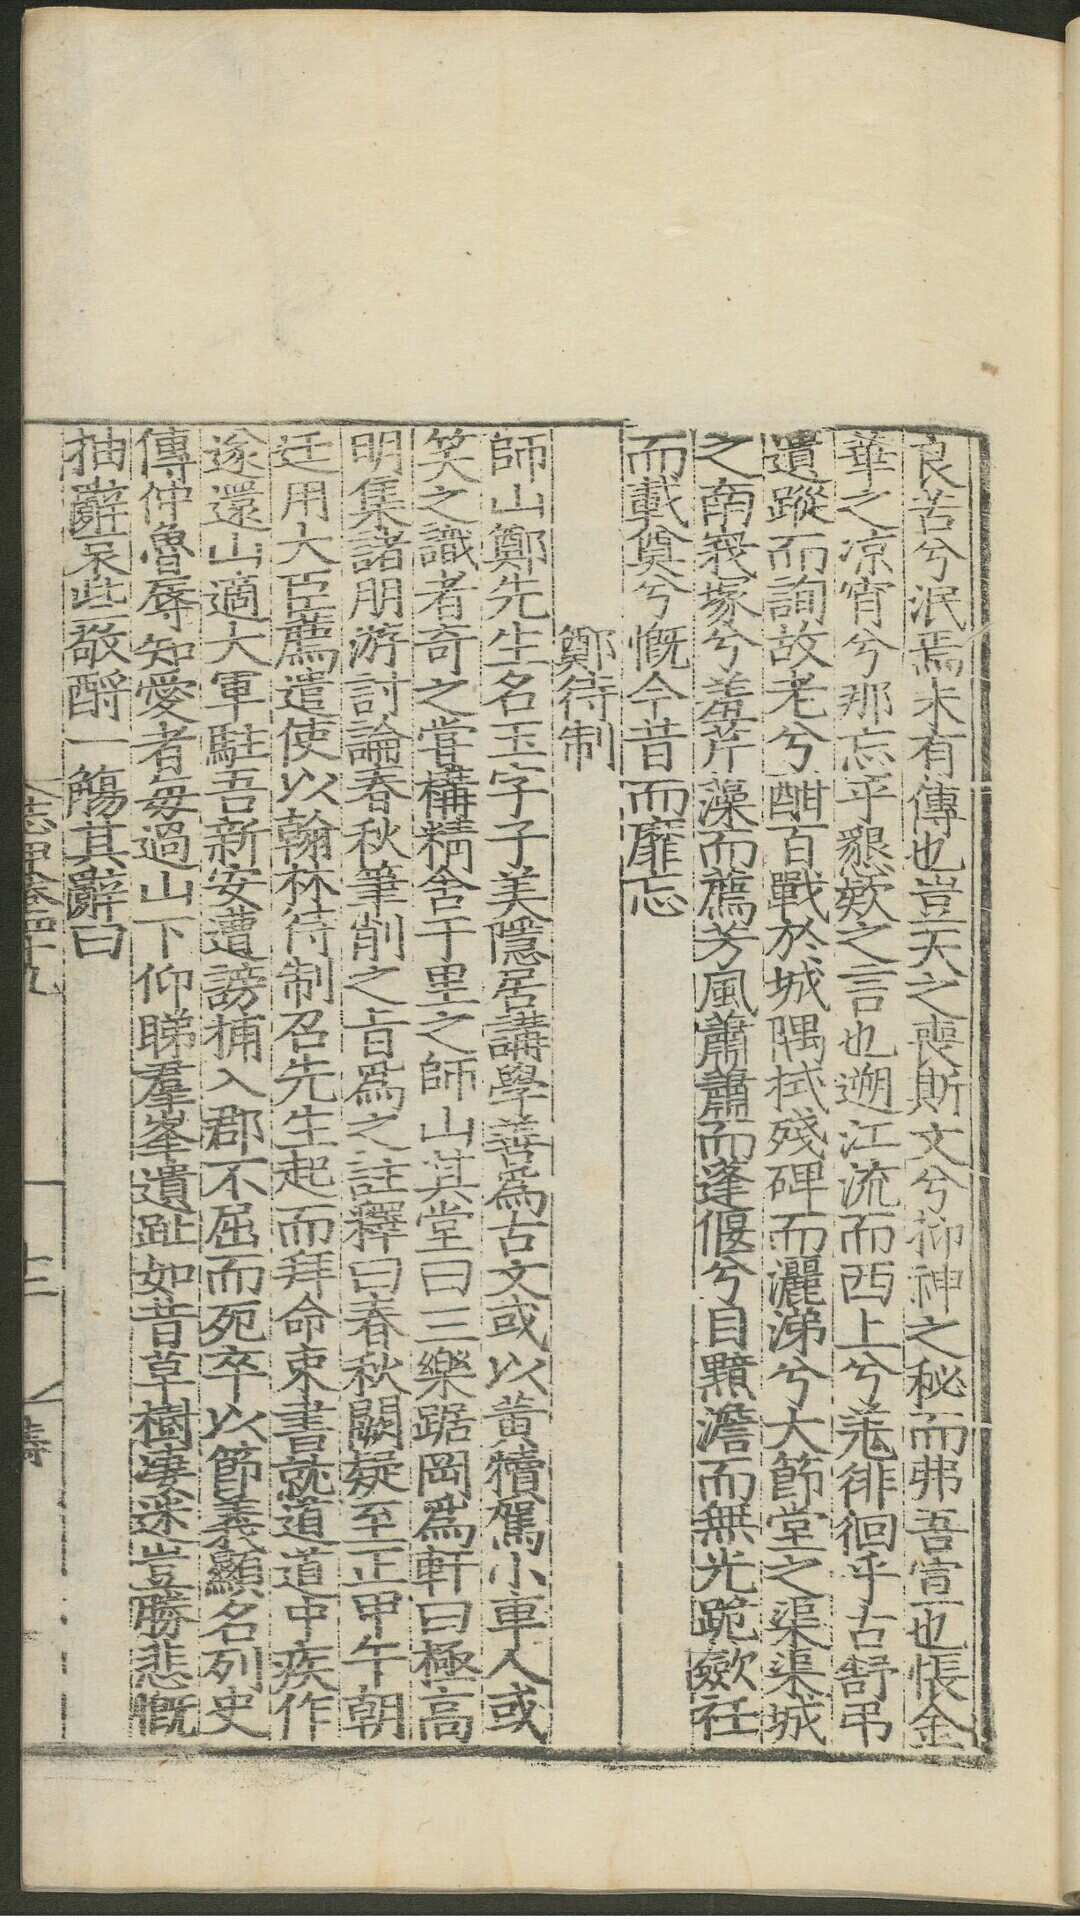 良苦兮泯焉未有傳也豈天之喪斯文兮抑神之秘而弗吾宣也悵金
華之凉宵兮那忘乎懇欵之言也遡江流而西上兮羌徘徊乎古舒弔
遺蹤而詢故老兮酣百戰於城隅拭殘碑而灑涕兮大節堂之渠渠城
之南峩塚兮羞芹藻而薦芳風蕭蕭而蓬偃兮目黯澹而無光跪斂衽
而載奠兮慨今昔而靡忘
鄭待制
師山鄭先生名玉字子美隱居講學善爲古文或以黃犢駕小車人或
笑之識者奇之嘗構精舍于里之師山其堂曰三樂踞岡爲軒曰極高
明集諸朋游討論春秋筆削之旨爲之註釋曰春秋闕疑至正甲午朝
廷用大臣薦遣使以翰林待制召先生起而拜命束書就道道中疾作
遂還山適大軍駐吾新安遭謗捕入郡不屈而死卒以節義顯名列史
傳仲魯辱知愛者每過山下仰睇羣峯遺趾如昔草樹凄迷豈勝悲慨
抽辭哀些敬酹一觴其辭曰
志甲卷四十九
十二